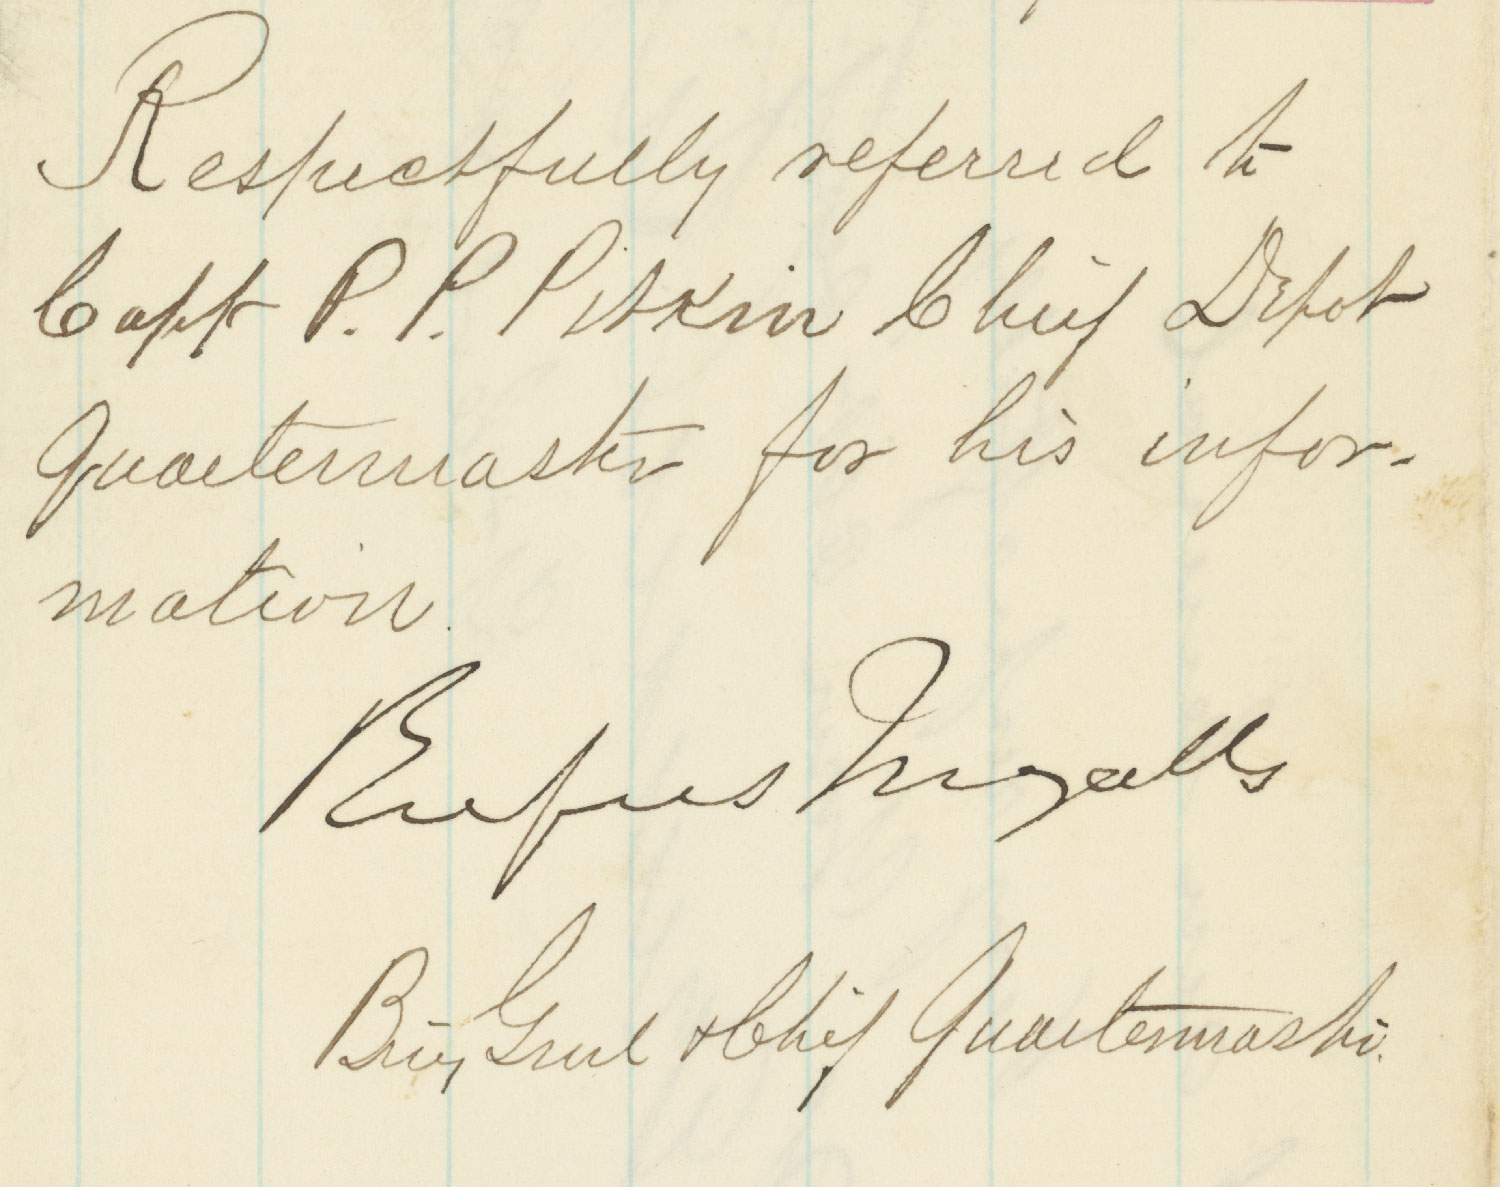 Respectfully referred to
Capt P. P. Pitkin Chief Depot
Quartermaster for his infor-
mation.
Rufus Ingalls
Brig Genl & Chief Quartermaster.